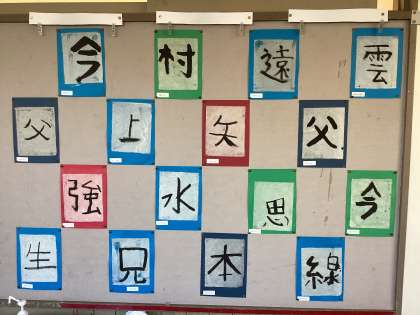 今 村 遠 雲
父 上 矢 父
強 水 思 今
生 兄 本 線